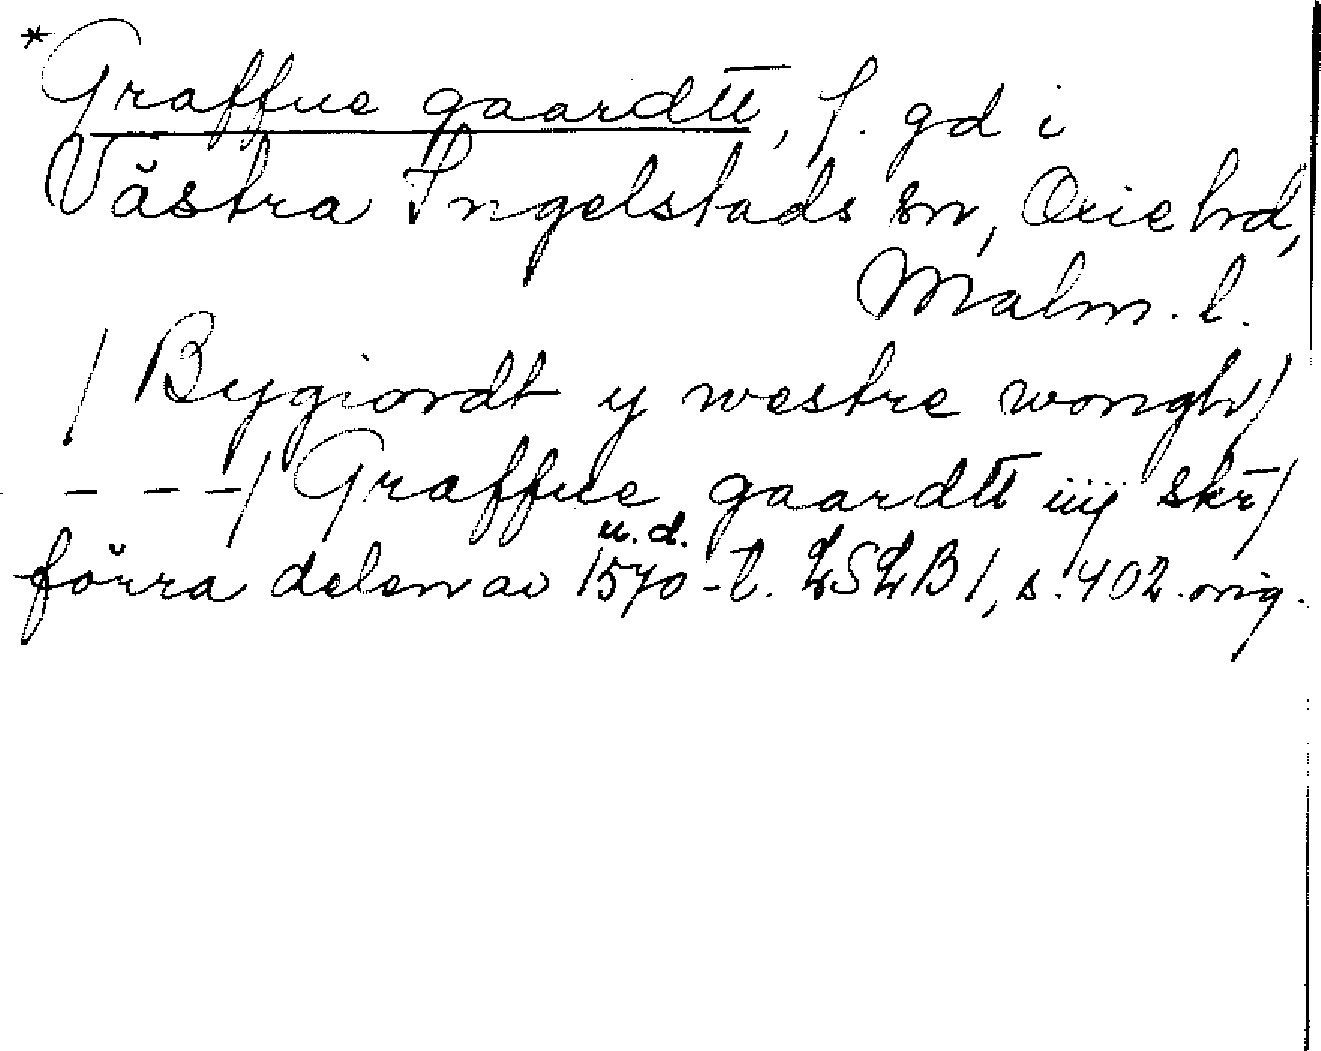 *Graffue gaardtt, f. gd i
Västra Ingelstads sn, Oxie hd,
Malm. l.
/ Bygiordt y westre wongh/
- - -/ Graffue gaardtt iiij skr̄/
u.d.
förra delen av 1570-t. LSLB 1, s. 402. orig.